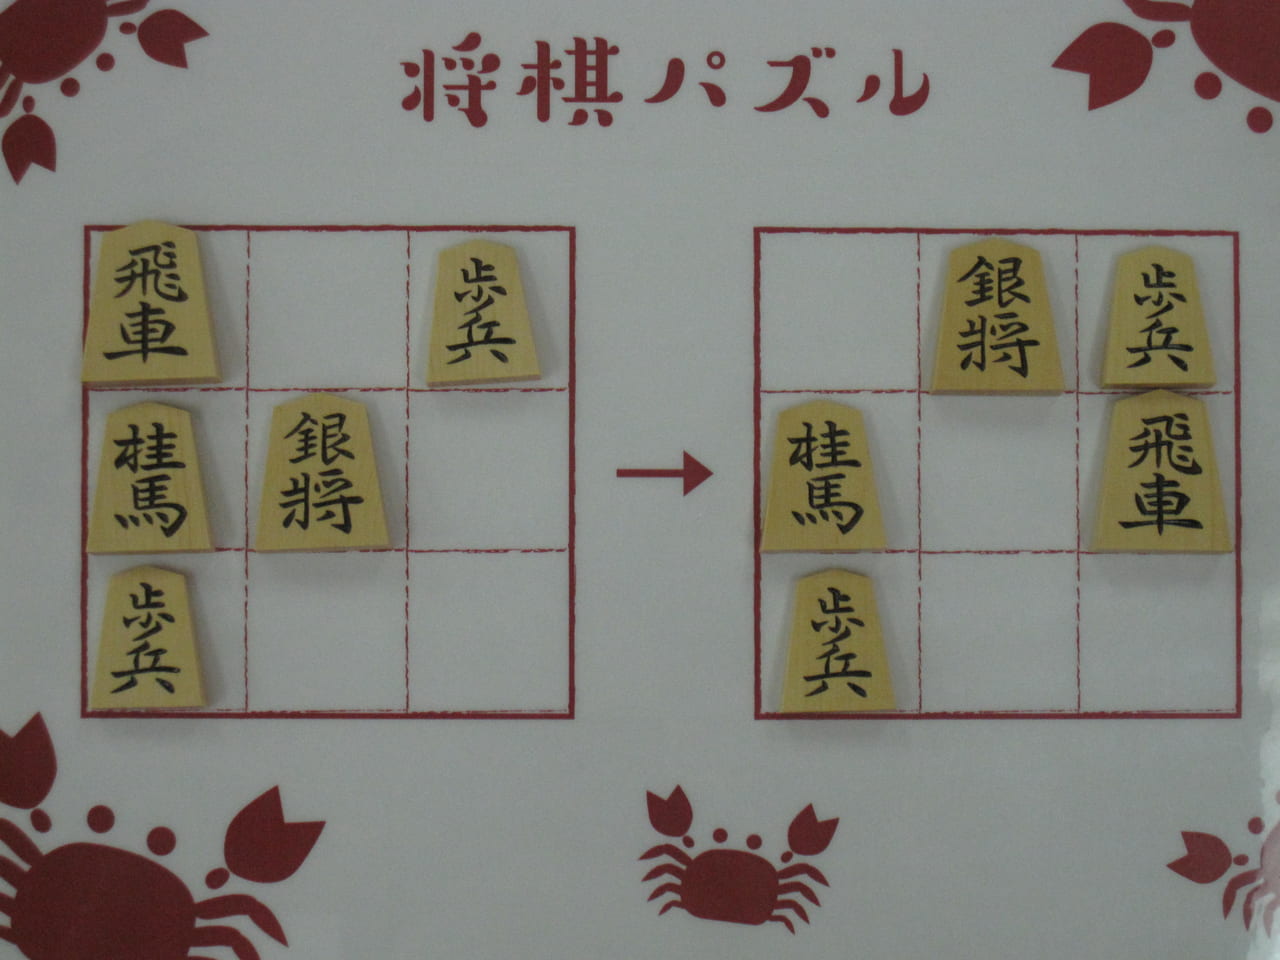 将棋パズル
飛車
歩兵
桂馬
銀將
歩兵
銀將
歩兵
桂馬
飛車
歩兵